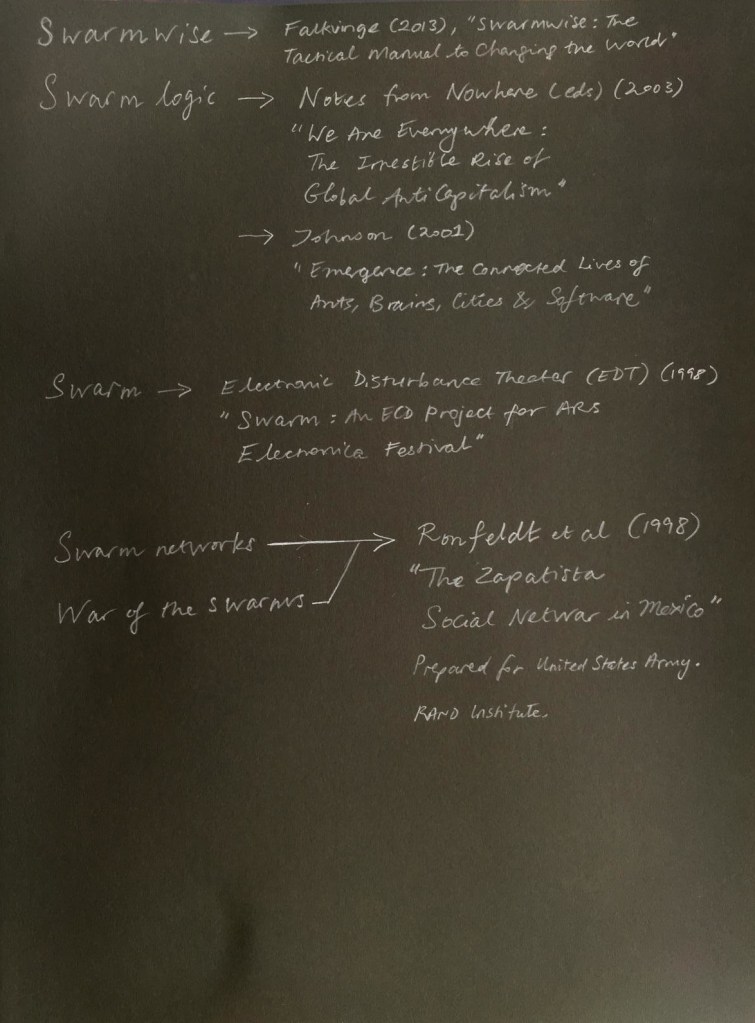 Swarmwise → Falkvinge (2013), "Swarmwise: The
Tactical Manual to Changing the World"
Swarm logic → Notes from Nowhere (eds) (2003)
"We Are Everywhere:
The Irrestible Rise of
Global AntiCapitalism"
→ Johnson (2001)
"Emergence: The Connected Lives of
Ants, Brains, Cities & Software"
Swarm → Electronic Disturbance Theater (EDT) (1998)
"Swarm: An ECD Project for ARS
Electronica Festival"
Swarm networks → Ronfeldt et al (1998)
"The Zapatista
War of the swarms
Social Netwar in Mexico"
Prepared for United States Army.
RAND Institute.